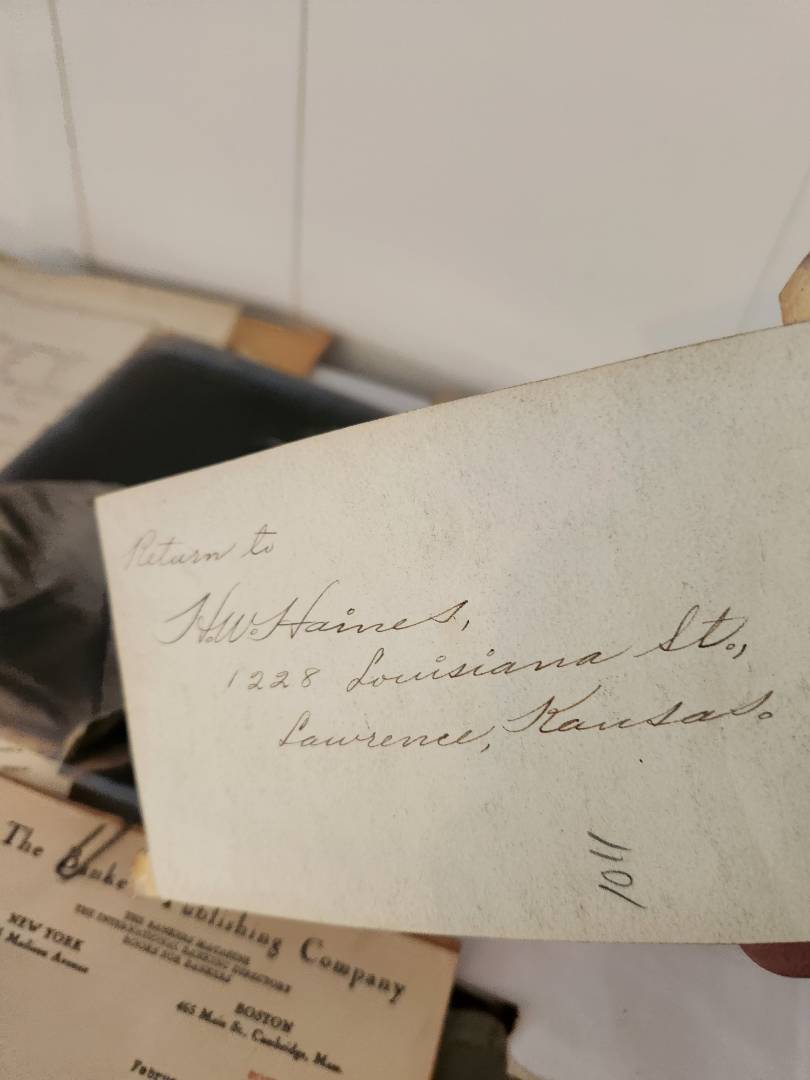 Return to
H.W. Haines,
1228 Louisiana St.,
Lawrence, Kansas.
1011
The Banke
Publishing Company
THE BANKERS MAGAZINE
THE INTERNATIONAL BANKING DIRECTORY
BOOKS FOR BANKERS
NEW YORK
Madison Avenue
BOSTON
465 Main St., Cambridge, Mass.
Februa